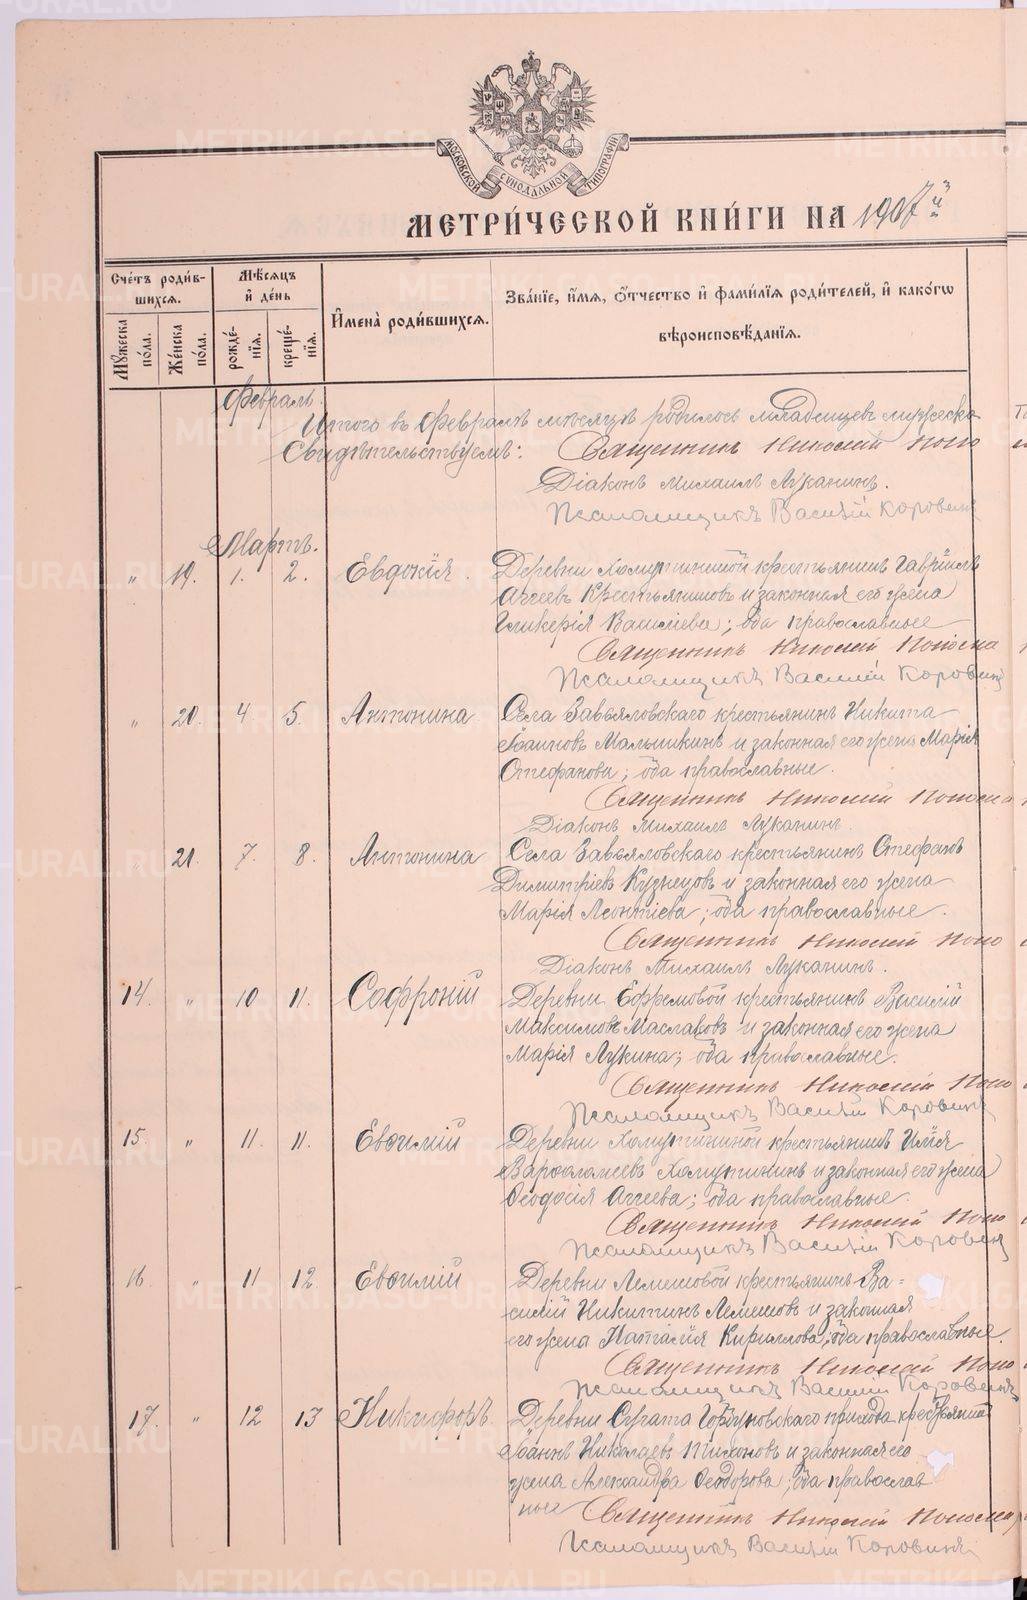 МОСКОВСКОЙ СѴНОДАЛЬНОЙ ТИПОГРАФІИ
МЕТРИ́ЧЕСКОЙ КНИ́ГИ НА 1907й
Сче́тъ роди́в-
шихся.
Мѣ́сяцъ
и҆ де́нь
Му́жеска
по́ла.
Же́нска
по́ла.
рожде́-
нїя.
креще́-
нїя.
И҆мена̀ роди́вшихся.
Зва́нїе, и҆́мя, ѻ҆́тчество и҆ фами́лїя роди́телей, и҆ како́гѡ
вѣроисповѣ́данїя.
Февраль.
Итого въ Февралѣ мѣсяцѣ родилось младенцевъ мужеска
Свидѣтельствуемъ: Священникъ Николай Попо
Діаконъ Михаилъ Луканинъ.
Псаломщикъ Василій Коровинъ
Мартъ.
" 19. 1. 2. Евдокія. Деревни Хомутининой крестьянинъ Гавріилъ
Аггеевъ Крестьянниковъ и законная его жена
Гликерія Василіева; оба православные
Священникъ Николай Попо
Псаломщикъ Василій Коровинъ
" 20. 4. 5. Антонина. Села Завьяловскаго крестьянинъ Никита
Іоанновъ Малышкинъ и законная его жена Марія
Стефанова; оба православные.
Священникъ Николай Попо
Діаконъ Михаилъ Луканинъ.
21. 7. 8. Антонина Села Завьяловскаго крестьянинъ Стефанъ
Димитріевъ Кузнецовъ и законная его жена
Марія Леонтіева; оба православные.
Священникъ Николай Попо
Діаконъ Михаилъ Луканинъ.
14. " 10 11. Софроній Деревни Ефремовой крестьянинъ Василій
Максимовъ Маслаковъ и законная его жена
Марія Лукина; оба православные.
Священникъ Николай Попо
Псаломщикъ Василій Коровинъ
15. " 11. 11. Евѳимій Деревни Хомутининой крестьянинъ Илія
Варѳоломеевъ Хомутининъ и законная его жена
Ѳеодосія Аггеева; оба православные.
Священникъ Николай Попо
Псаломщикъ Василій Коровинъ
16. " 11 12. Евѳимій Деревни Лемешовой крестьянинъ Ва=
силій Никитинъ Лемешовъ и законная
его жена Наталія Кириллова; оба православные.
Священникъ Николай Попо
Псаломщикъ Василій Коровинъ
17. " 12 13 Никифоръ. Деревни Сугата Горбуновскаго прихода крестьянинъ
Іоаннъ Николаевъ Тихоновъ и законная его
жена Александра Ѳеодорова; оба православ
ные Священникъ Николай Попо
Псаломщикъ Василій Коровинъ
METRIKI.GASO-URAL.RU